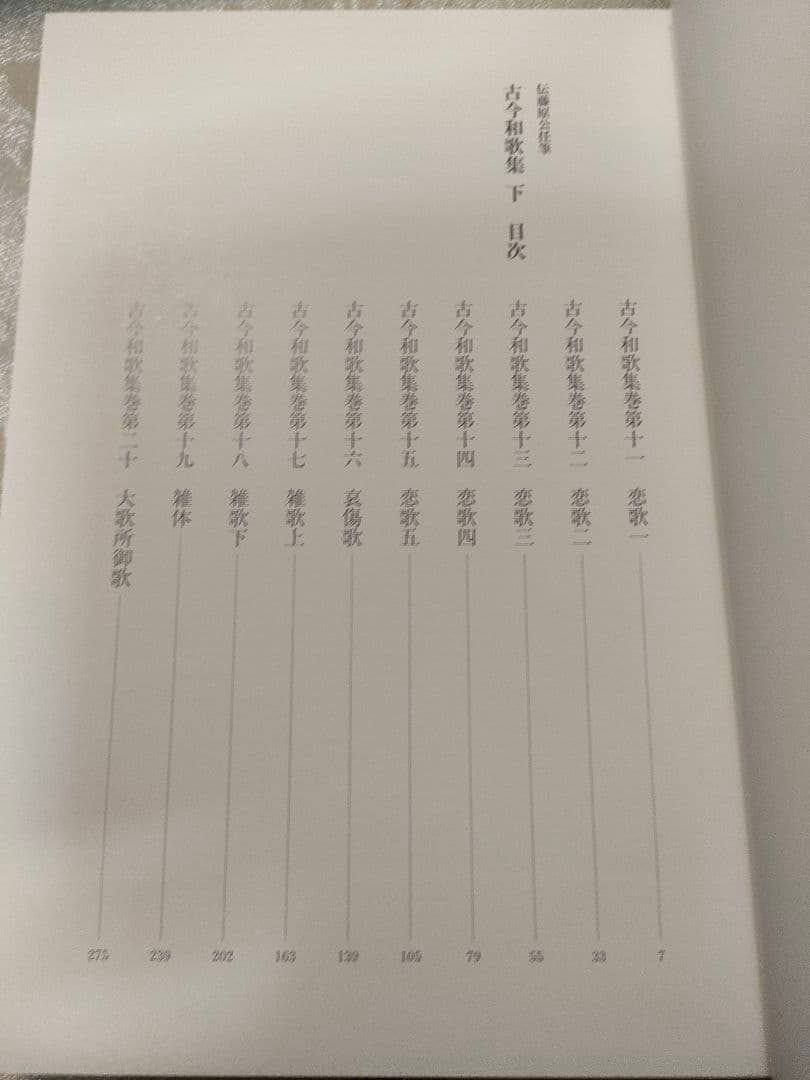 伝藤原公任筆
古今和歌集 下 目次
古今和歌集巻第十一 恋歌一 7
古今和歌集巻第十二 恋歌二 33
古今和歌集巻第十三 恋歌三 55
古今和歌集巻第十四 恋歌四 79
古今和歌集巻第十五 恋歌五 105
古今和歌集巻第十六 哀傷歌 139
古今和歌集巻第十七 雑歌上 163
古今和歌集巻第十八 雑歌下 202
古今和歌集巻第十九 雑体 239
古今和歌集巻第二十 大歌所御歌 275